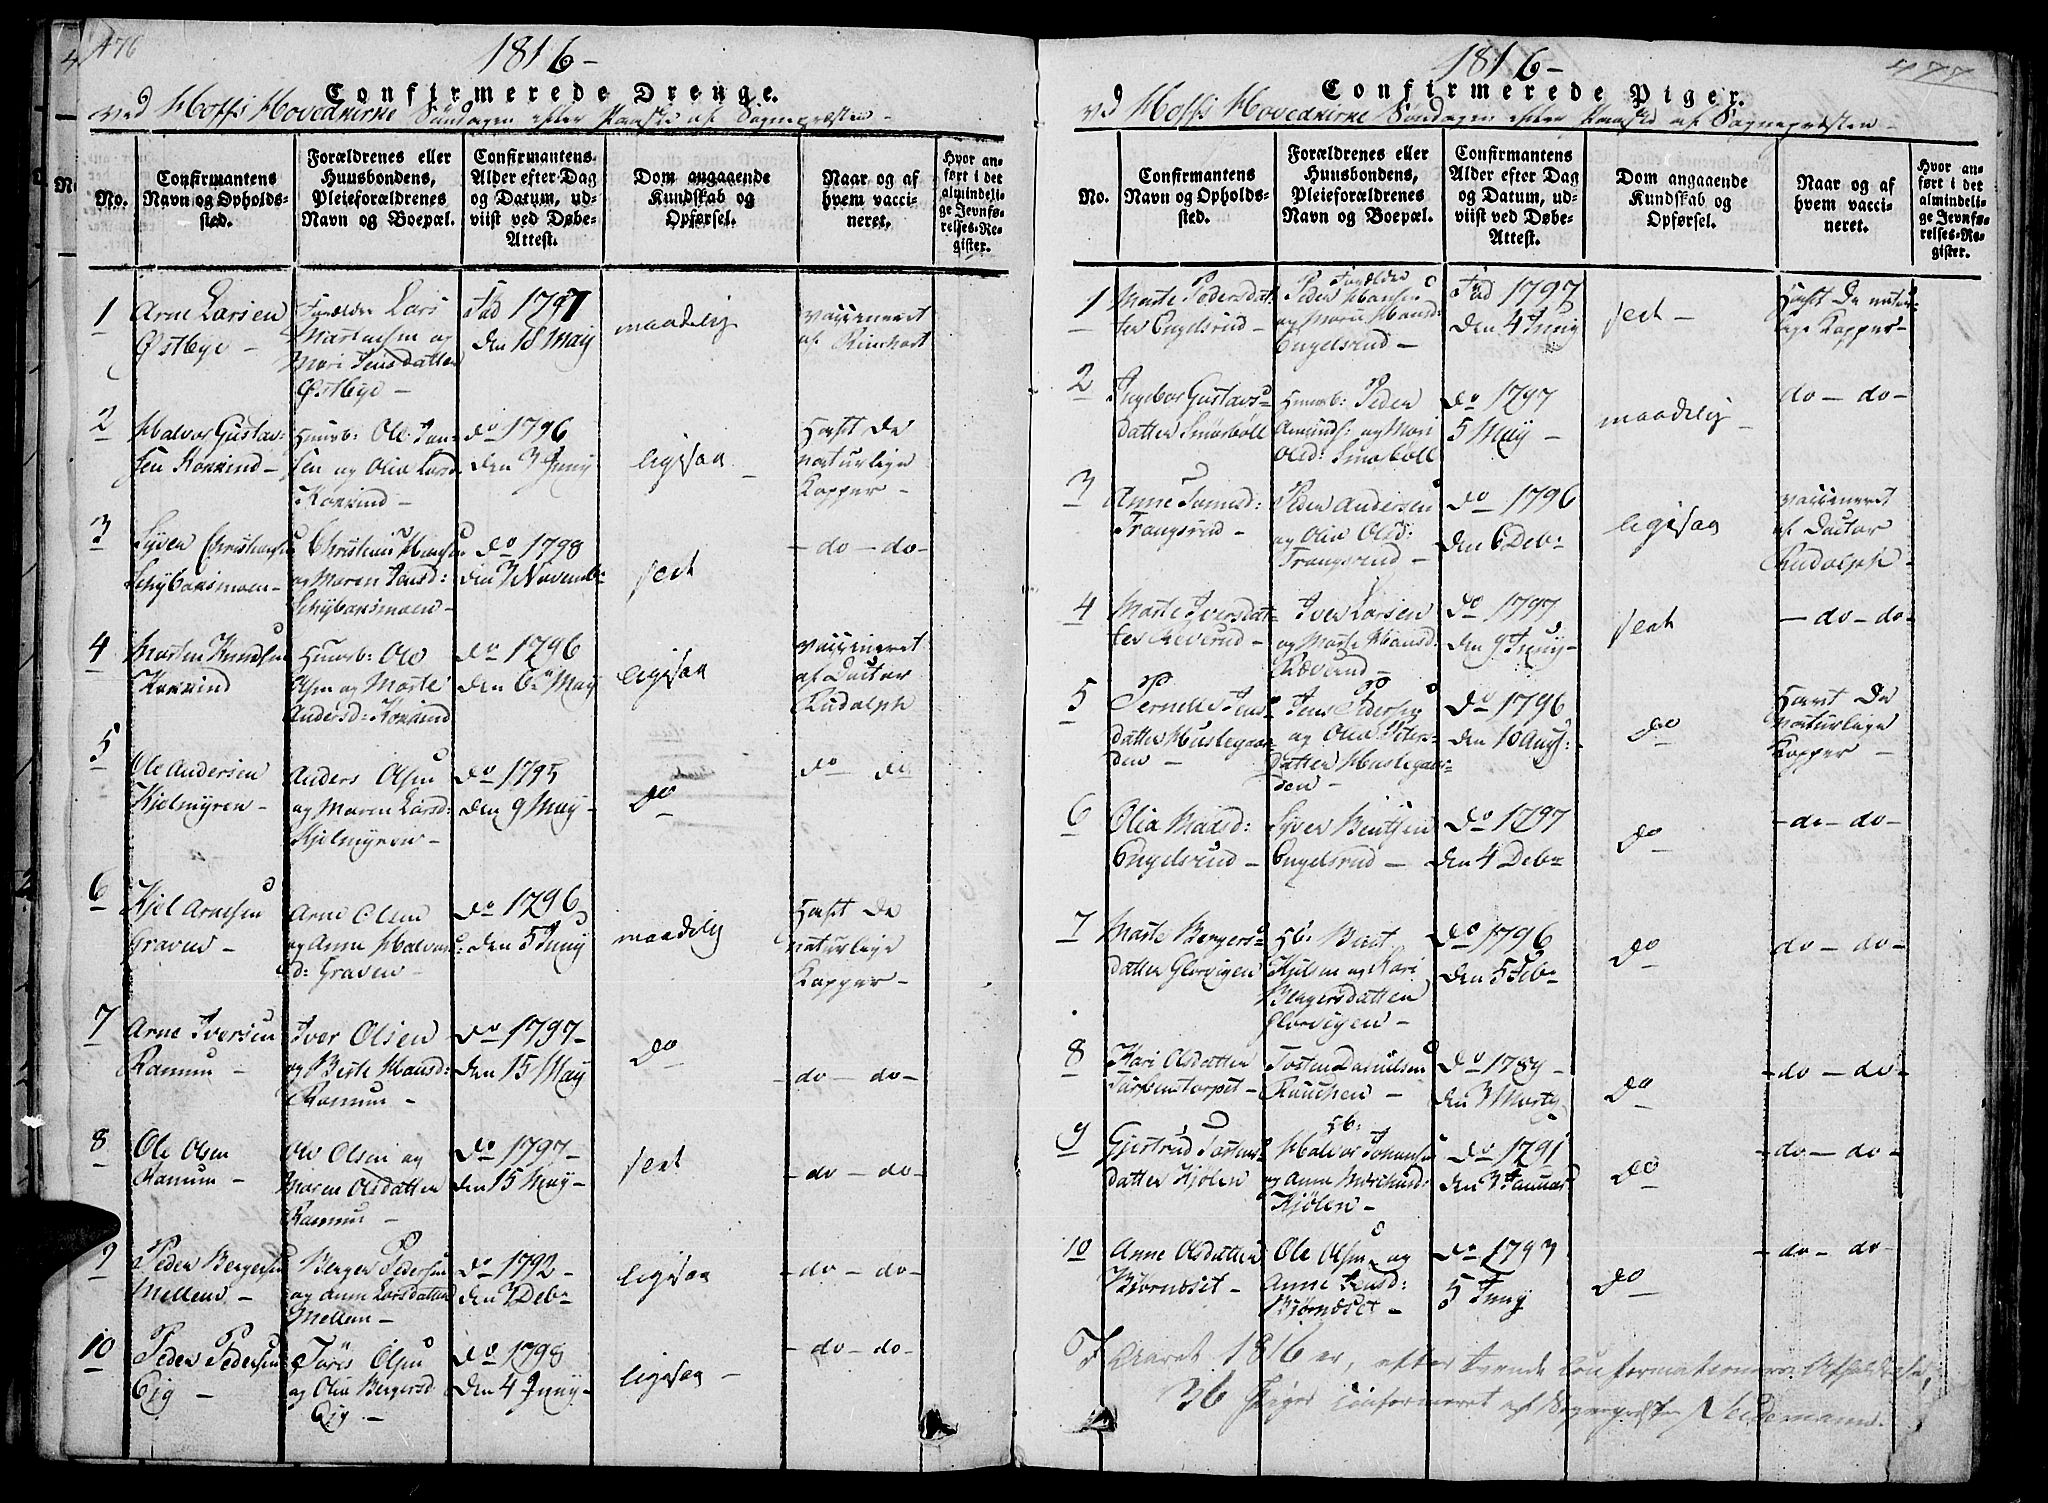 476
1816 –
Confirmerede Drenge.
ved Hoffs Hovedkirke Søndagen efter Paaske af Sognepræsten –
No.
Confirmantens Navn og Opholds-sted.
Forældrenes eller Huusbondens, Pleieforældrenes Navn og Boepæl.
Confirmantens Alder efter Dag og Datum, ud-viist ved Døbe-Attest.
Dom angaaende Kundskab og Opførsel.
Naar og af hvem vacci-neret.
Hvor an-ført i det almindeli-ge Jevnfø-relses-Re-gister.
1
Arne Larsen
Østbye –
Forældre Lars
og
Mari Jensdatter
Østbye –
Fød 1797
den 18 May
maadelig
vaccineret
af
2
Halvor Gustav:
sen Kokkind –
Huusb: Ole
sen og Olia Larsd
Kokkind –
do 1796
den 3 Juny
ligesaa –
Havt de
naturlige
Kopper –
3
Syver Christiansen
Christian Hansen
og Maren Jensd:
do 1798
den 3 Novembr
slet
– do – do –
4
Morten Knudsen
Kokkind
Huusb: Ole
Olsen og Marte
Andersd: Kokkind
do 1796
den 6 May
ligesaa
vaccineret
af Doctor
Rudolph
5
Ole Andersen
Kjelmyren –
Anders Olsen
og Maren Larsd:
Kjelmyren –
do 1795
den 9 May –
do
do – do
6
Kjel Arnesen
Graven –
Arne Olsen
og Anne Halvor
d: Graven –
do 1796
den 5 Juny
maadelig
Havt de
naturlige
Kopper –
7
Arne Iversen
Ramun –
Iver Olsen
og Berte Hansd:
Ramun –
do 1797 –
den 15 May
do
– do – do –
8
Ole Olsen
Ramun –
Ole Olsen og
Maren Olsdatter
Ramun –
do 1797 –
den 15 May –
slet
– do – do –
9
Peder Bergersen
Mellem –
Berger Pedersen
og Anne Larsdatter
Mellem –
do 1792 –
den 3 Debr
ligesaa
– do – do –
10
Peder Pedersen
Eig –
Olsen
og Olia Bergersd
Eig –
do 1798
den 4 Juny –
ligesaa –
– do – do –
477
1816 –
Confirmerede Piger.
ved Hoffs Hovedkirke Søndagen efter Paaske af Sognepræsten –
No.
Confirmantens Navn og Opholds-sted.
Forældrenes eller Huusbondens, Pleieforældrenes Navn og Boepæl.
Confirmantens Alder efter Dag og Datum, ud-viist ved Døbe-Attest.
Dom angaaende Kundskab og Opførsel.
Naar og af hvem vacci-neret.
Hvor an-ført i det almindeli-ge Jevnfø-relses-Re-gister.
1
Marte Pedersdat
ter Engelsrud –
Forældre
Peder Hansen
og Mari Hansd:
Engelsrud –
Fød 1797
den 4 Juny
slet –
Havt de natur
lige Kopper –
2
Ingebor Gustavs
datter Smørbøll
Huusb: Peder
Amunds: og Mari
Olsd: Smørbøll
do 1797
5 May –
maadelig –
do – do –
3
Anne
Trangsrud –
Peder Andersen
og Olia Olsd:
Trangsrud –
do 1796
den 6 Debr
ligesaa
vaccineret
af Doctor
Rudolph –
4
Marte Iversdat
ter Ræverud –
Iver Larsen
og Marte Hansd:
Ræverud –
do 1797
den 9 Juny –
slet
– do – do –
5
Pernelle Jens
datter Huslegaar
den –
Jens Pedersen
og Olia Peders
datter Huslegaar
den –
do 1796
den 10 Aug:
do
Havt de
naturlige
Kopper –
6
Olia Hansd:
Engelsrud –
Syver Bentsen
Engelsrud –
do 1797
den 4 Debr
do
– do – do –
7
Marte Bergers
datter Glorvigen
Hb: Bent
Kjelsen og Kari
Bergersdatter
Glorvigen –
do 1796
den 5 Febr
do
do – do –
8
Kari Olsdatter
Torpentorpet –
Tosten Danielsen
do 1789 –
den 3 Marty
do
– do – do –
9
Gjertrud Tostens
datter Kjølen
Hb:
Halvor Johansen
og Anne
Kjølen –
do 1791
den 3 Januar
do
– do – do –
10
Anne Olsdatter
Bjørneset –
Ole Olsen og
Anne Jensd:
Bjørneset –
do 1793
5 Juny
do
– do – do –
I Aaret 1816 er, efter tvende Confirmationers Afholdelse,
36 Piger Confirmeret af Sognepræsten Neidemann.